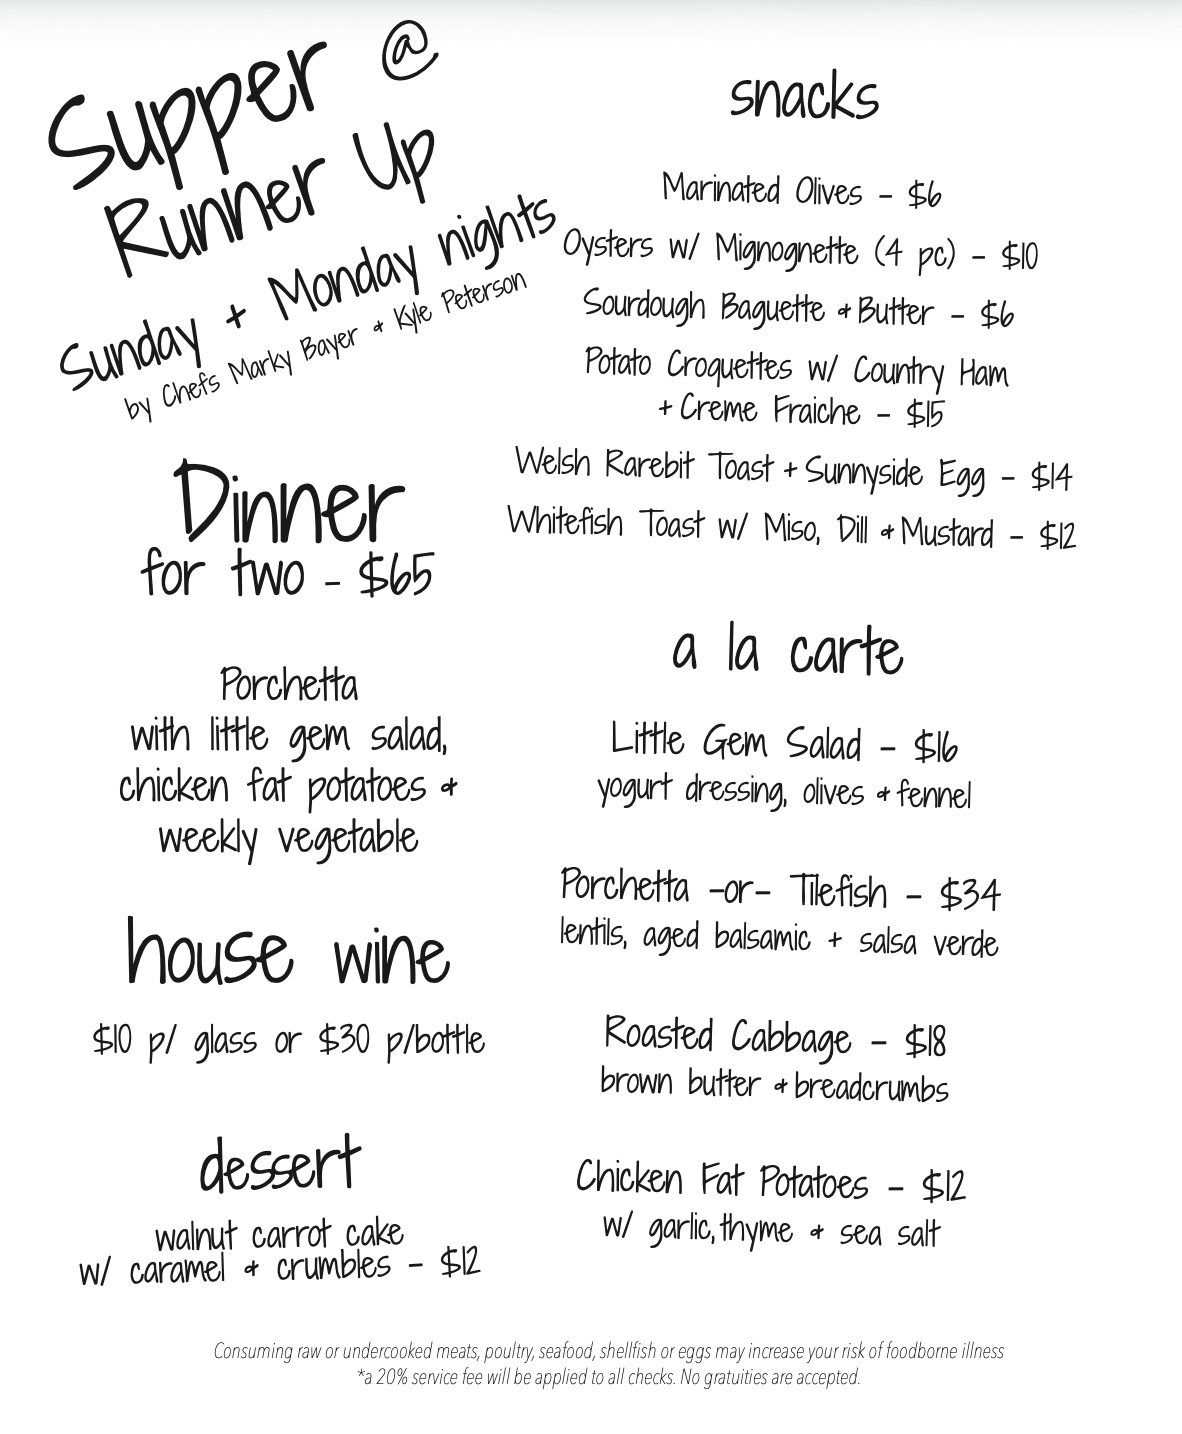 Supper @
Runner Up
Sunday + Monday nights
by Chefs Marky Bayer & Kyle Peterson
Dinner
for two - $65
Porchetta
with little gem salad,
chicken fat potatoes &
weekly vegetable
house wine
$10 p/ glass or $30 p/bottle
dessert
walnut carrot cake
w/ caramel & crumbles - $12
snacks
Marinated Olives - $6
Oysters w/ Mignognette (4 pc) - $10
Sourdough Baguette & Butter - $6
Potato Croquettes w/ Country Ham
+ Creme Fraiche - $15
Welsh Rarebit Toast + Sunnyside Egg - $14
Whitefish Toast w/ Miso, Dill & Mustard - $12
a la carte
Little Gem Salad - $16
yogurt dressing, olives & fennel
Porchetta -or- Tilefish - $34
lentils, aged balsamic + salsa verde
Roasted Cabbage - $18
brown butter & breadcrumbs
Chicken Fat Potatoes - $12
w/ garlic, thyme & sea salt
Consuming raw or undercooked meats, poultry, seafood, shellfish or eggs may increase your risk of foodborne illness
*a 20% service fee will be applied to all checks. No gratuities are accepted.